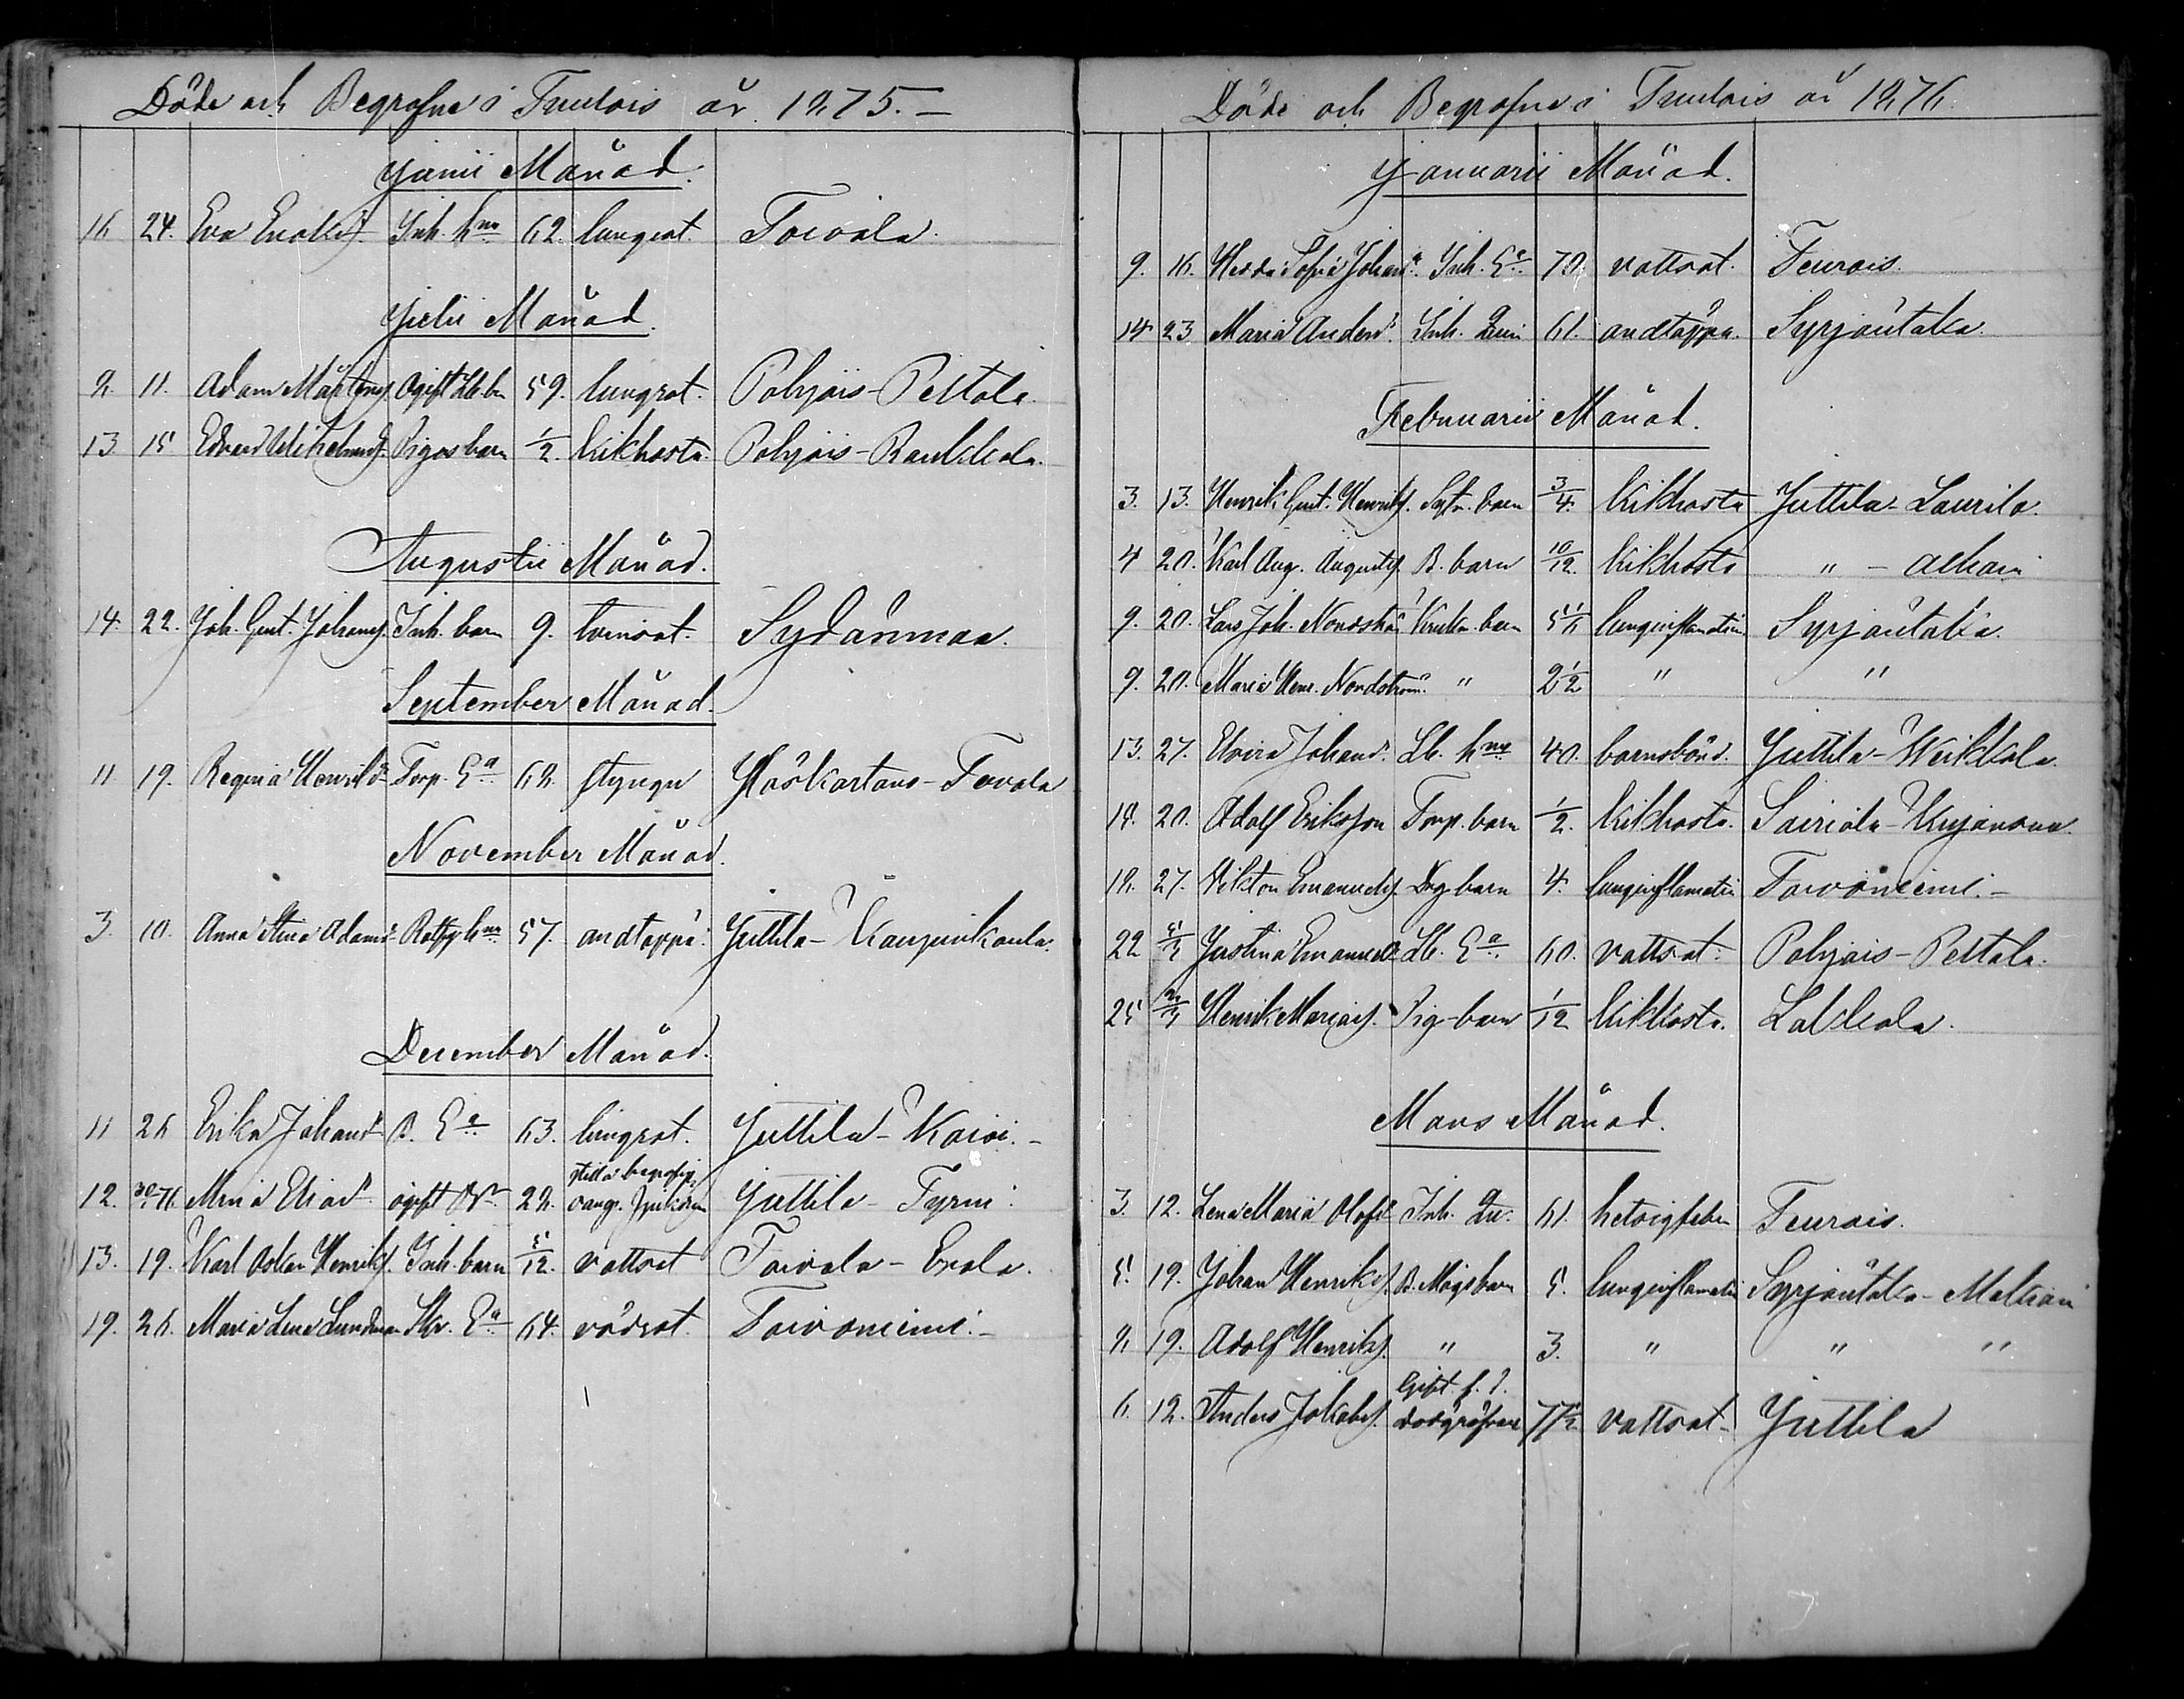 Döde och Begrafne i Tuulois år 1875.
Junii Månad.
16 24. Eva Eriksd. Inh. hm 62. lungsot. Toivola.
Julii Månad.
2. 11. Adam Mårtens. Ogift 59. lungsot. Pohjois-Peltola.
13 15 Edvard Wilhelmss. Pigos barn 1/2 kikhosta. Pohjois-Raukkola.
Augustii Månad.
14. 22. Joh. Gust. Johans. Inh. barn 9. tvinsot. Sydänmaa.
September Månad.
11. 19. Regina Henriksdr Torp. Ea 68. styngn Toivola
November Månad.
3. 10. Anna Stina Adamsdr hm 57. andtäppa. Juttila-
December Månad.
11 26 Erika Johansdr B. Ea 63. lungsot. Juttila-
stilla begrafn.
12. 30/1 76. Elias dr ogift 28. Juttila-Tyrni.
13. 19. Karl Oskar Henriks. Inh. barn 5/12. vattsot Toivola-Erola.
19. 26. Maria Lena Lundman Ea 64. rödsot. Toivoniemi.
Döde och Begrafne i Tuulois år 1876.
Januarii Månad.
9. 16. Hedda Sofia Johansdr. Inh. Ea 70. vattsot. Teurois.
14 23 Maria Andersdr. Inh. 61. andtäppa. Syrjäntaka.
Februarii Månad.
3. 13. Henrik Gust. Henriks. barn 3/4. kikhosta Juttila-Laurila.
4 20. Karl Aug. Augusts. B. barn 10/12. kikhosta " -
9. 20. Lars Joh. Nordström barn lunginflamation Syrjäntaka.
9. 20. Maria Henr. Nordström. " 2 1/2 " "
13. 27. Elvira Johansdr. Lb. hm 40. barnsbörd. Juttila-Weikkola.
18. 20. Adolf Eriksson Torp. barn 1/2. kikhosta. Sairiala-
18. 27. Viktor Emanuels. barn 4. lunginflamation Toivoniemi.
22 5/3 Justina Emanuelsdr Lb. Ea 60. vattsot. Pohjois-Peltola.
25 Henrik Mariæs. Pig-barn 1/12 kikhosta. Lakkola.
Mars Månad.
3. 12. Lena Maria Olofsdr Inh. 61. hetsigfeber Teurois.
5. 19. Johan Henriks. B. Mågs barn 5. lunginflamation Syrjäntaka-
8. 19. Adolf Henriks. " 3. " " "
Gift. f. d.
6. 12. Anders Jakobs. dödgräfvare vattsot Juttila